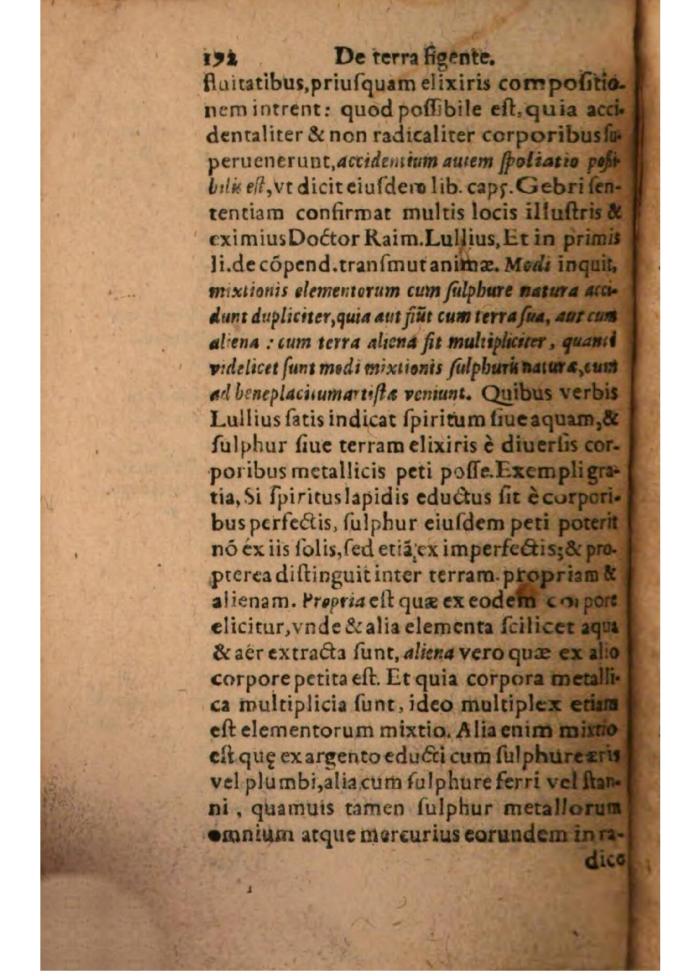 192 De terra figente.
fluitatibus, priuſquam elixiris compoſitio-
nem intrent: quod poſſibile eſt, quia acci-
dentaliter & non radicaliter corporibus ſu-
peruenerunt, accidentium autem ſpoliatio poſſi-
bilis eſt, vt dicit eiuſdem lib. cap5. Gebri ſen-
tentiam confirmat multis locis illuſtris &
eximius Doctor Raim. Lullius, Et in primis
li. de cōpend. tranſmut animæ. Modi inquit,
mixtionis elementorum cum ſulphure natura acci-
dunt dupliciter, quia aut fiūt cum terra ſua, aut cum
aliena : cum terra aliena fit multipliciter, quanti
videlicet ſunt modi mixtionis ſulphuris naturæ, cum
ad beneplacitum artiſtæ veniunt. Quibus verbis
Lullius ſatis indicat ſpiritum ſiue aquam, &
ſulphur ſiue terram elixiris è diuerſis cor-
poribus metallicis peti poſſe. Exempli gra-
tia, Si ſpiritus lapidis eductus ſit è corpori-
bus perfectis, ſulphur eiuſdem peti poterit
nō ex iis ſolis, ſed etiā ex imperfectis; & pro-
pterea diſtinguit inter terram propriam &
alienam. Propria eſt quæ ex eodem corpore
elicitur, vnde & alia elementa ſcilicet aqua
& aër extracta ſunt, aliena vero quæ ex alio
corpore petita eſt. Et quia corpora metalli-
ca multiplicia ſunt, ideo multiplex etiam
eſt elementorum mixtio. Alia enim mixtio
eſt quę ex argento educti cum ſulphure æris
vel plumbi, alia cum ſulphure ferri vel ſtan-
ni, quamuis tamen ſulphur metallorum
omnium atque mercurius eorundem in ra-
dice